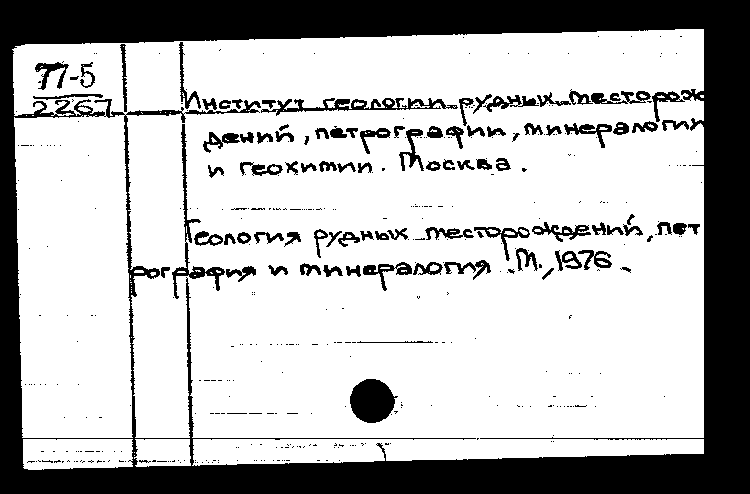 77-5
2267
Институт геологии рудных месторож
дений, петрографии, минералогии
и геохимии. Москва.
Геология рудных месторождений, пет
рография и минералогия. М., 1976.